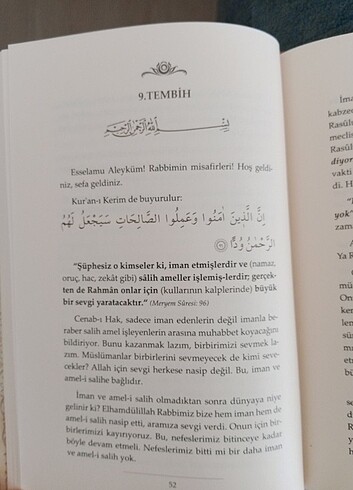 9.TEMBİH
بِسْمِ اللهِ الرَّحْمٰنِ الرَّحِيمِ
Esselamu Aleyküm! Rabbimin misafirleri! Hoş geldi-
niz, sefa geldiniz.
Kur'an-ı Kerim de buyurulur:
اِنَّ الَّذِينَ اٰمَنُوا وَعَمِلُوا الصَّالِحَاتِ سَيَجْعَلُ لَهُمُ
الرَّحْمٰنُ وُدًّا
“Şüphesiz o kimseler ki, iman etmişlerdir ve (namaz,
oruç, hac, zekât gibi) sâlih ameller işlemiş-lerdir; gerçek-
ten de Rahmân onlar için (kullarının kalplerinde) büyük
bir sevgi yaratacaktır.” (Meryem Sûresi: 96)
Cenab-ı Hak, sadece iman edenlerin değil imanla be-
raber salih amel işleyenlerin arasına muhabbet koyacağını
bildiriyor. Bunu kazanmak lazım, birbirimizi sevmek la-
zım. Müslümanlar birbirlerini sevmeyecek de kimi seve-
cekler? Allah için sevgi herkese nasip değil. Bu, iman ve
amel-i salihe bağlıdır.
İman ve amel-i salih olmadıktan sonra dünyaya niye
gelinir ki? Elhamdülillah Rabbimiz bize hem iman hem de
amel-i salih nasip etti, aramıza sevgi verdi. Onun için bir-
birlerimizi kayırıyoruz. Bu, nefeslerimiz bitinceye kadar
böyle devam etmeli. Nefeslerimiz bitti mi bir daha iman
ve amel-i salih yok.
52